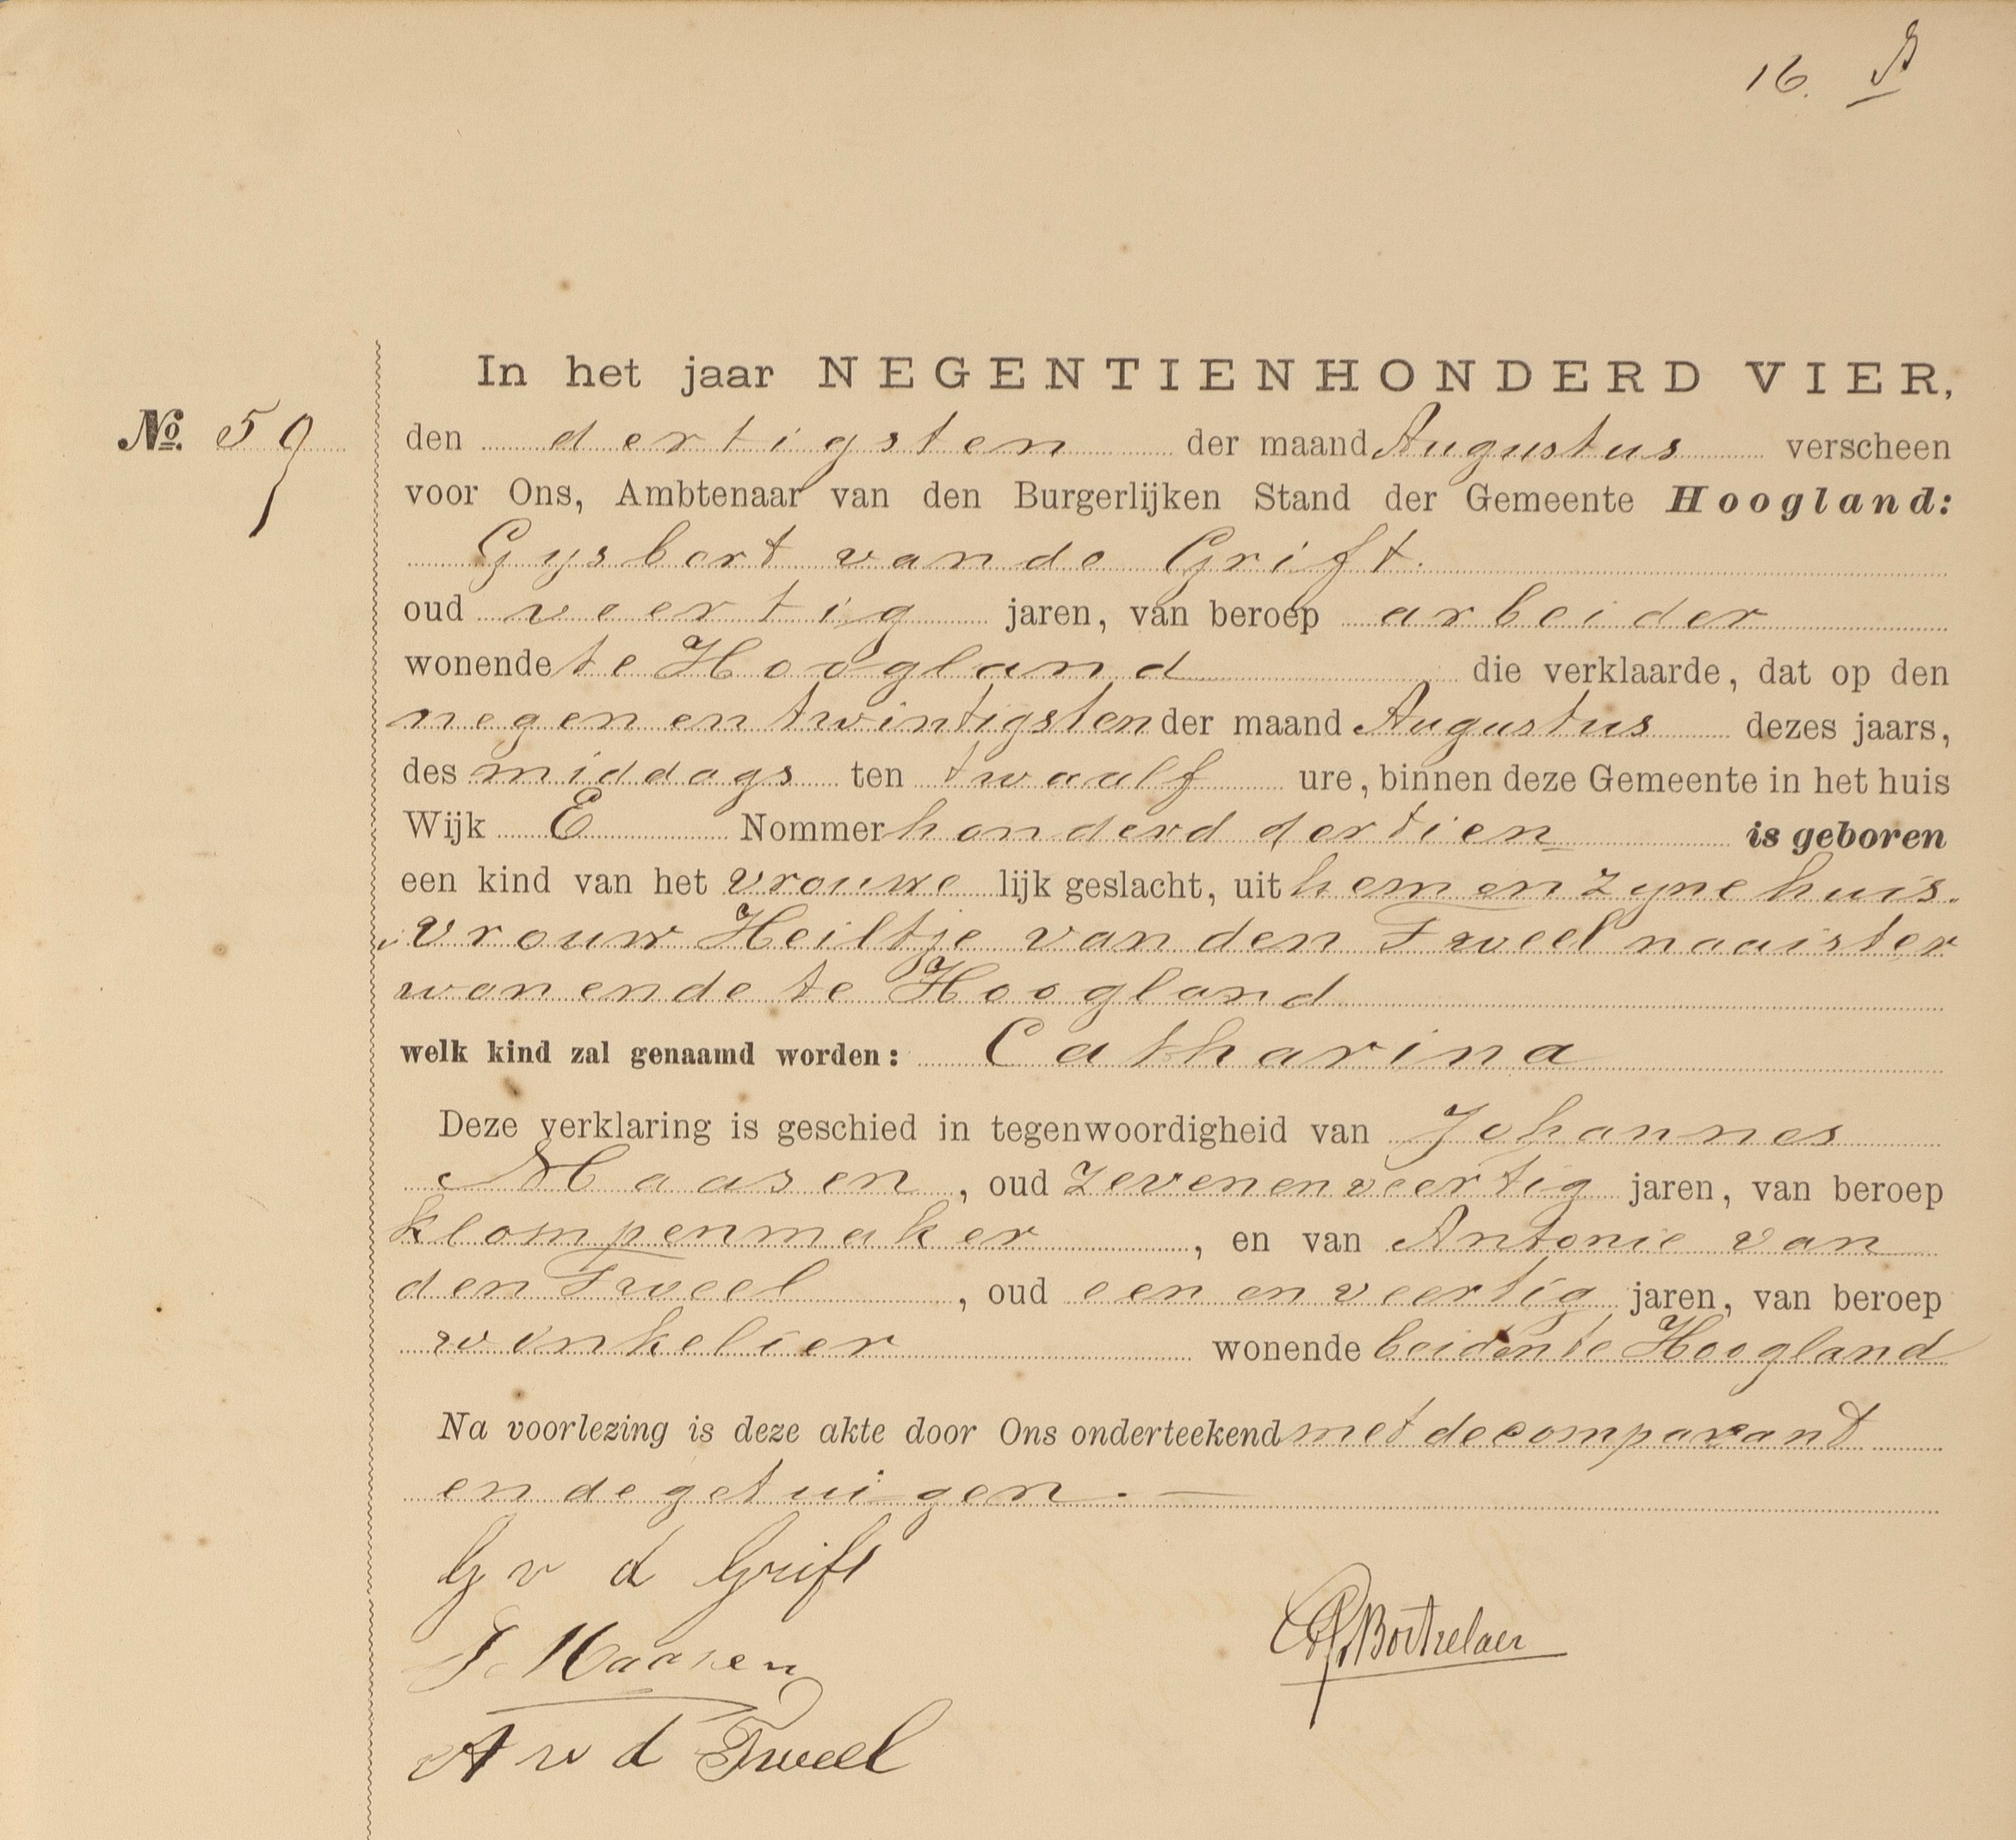 16.
In het jaar NEGENTIENHONDERD VIER,
No. 59 den dertigsten der maand Augustus verscheen
voor Ons, Ambtenaar van den Burgerlijken Stand der Gemeente Hoogland:
Gysbert van de Grift.
oud veertig jaren, van beroep arbeider
wonende te Hoogland die verklaarde, dat op den
negen en twintigsten der maand Augustus dezes jaars,
des middags ten twaalf ure, binnen deze Gemeente in het huis
Wijk E Nommer honderd dertien is geboren
een kind van het vrouwe lijk geslacht, uit hem en zyne huis-
vrouw Heiltje van den Tweel naaister
wonende te Hoogland
welk kind zal genaamd worden: Catharina
Deze verklaring is geschied in tegenwoordigheid van Johannes
Maasen, oud zevenenveertig jaren, van beroep
klompenmaker, en van Antonie van
den Tweel, oud een en veertig jaren, van beroep
winkelier wonende beiden te Hoogland
Na voorlezing is deze akte door Ons onderteekend met de comparant
en de getuigen.
G v d Grift
J. Maasen
A v d Tweel